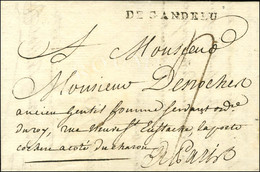 DE GANDELU
A Monsieur
Monsieur Desrochers
ancien Gentil homme servant ordre
du roy, rue Neuve St Eustache, la porte
cochere a coté du charon
A Paris